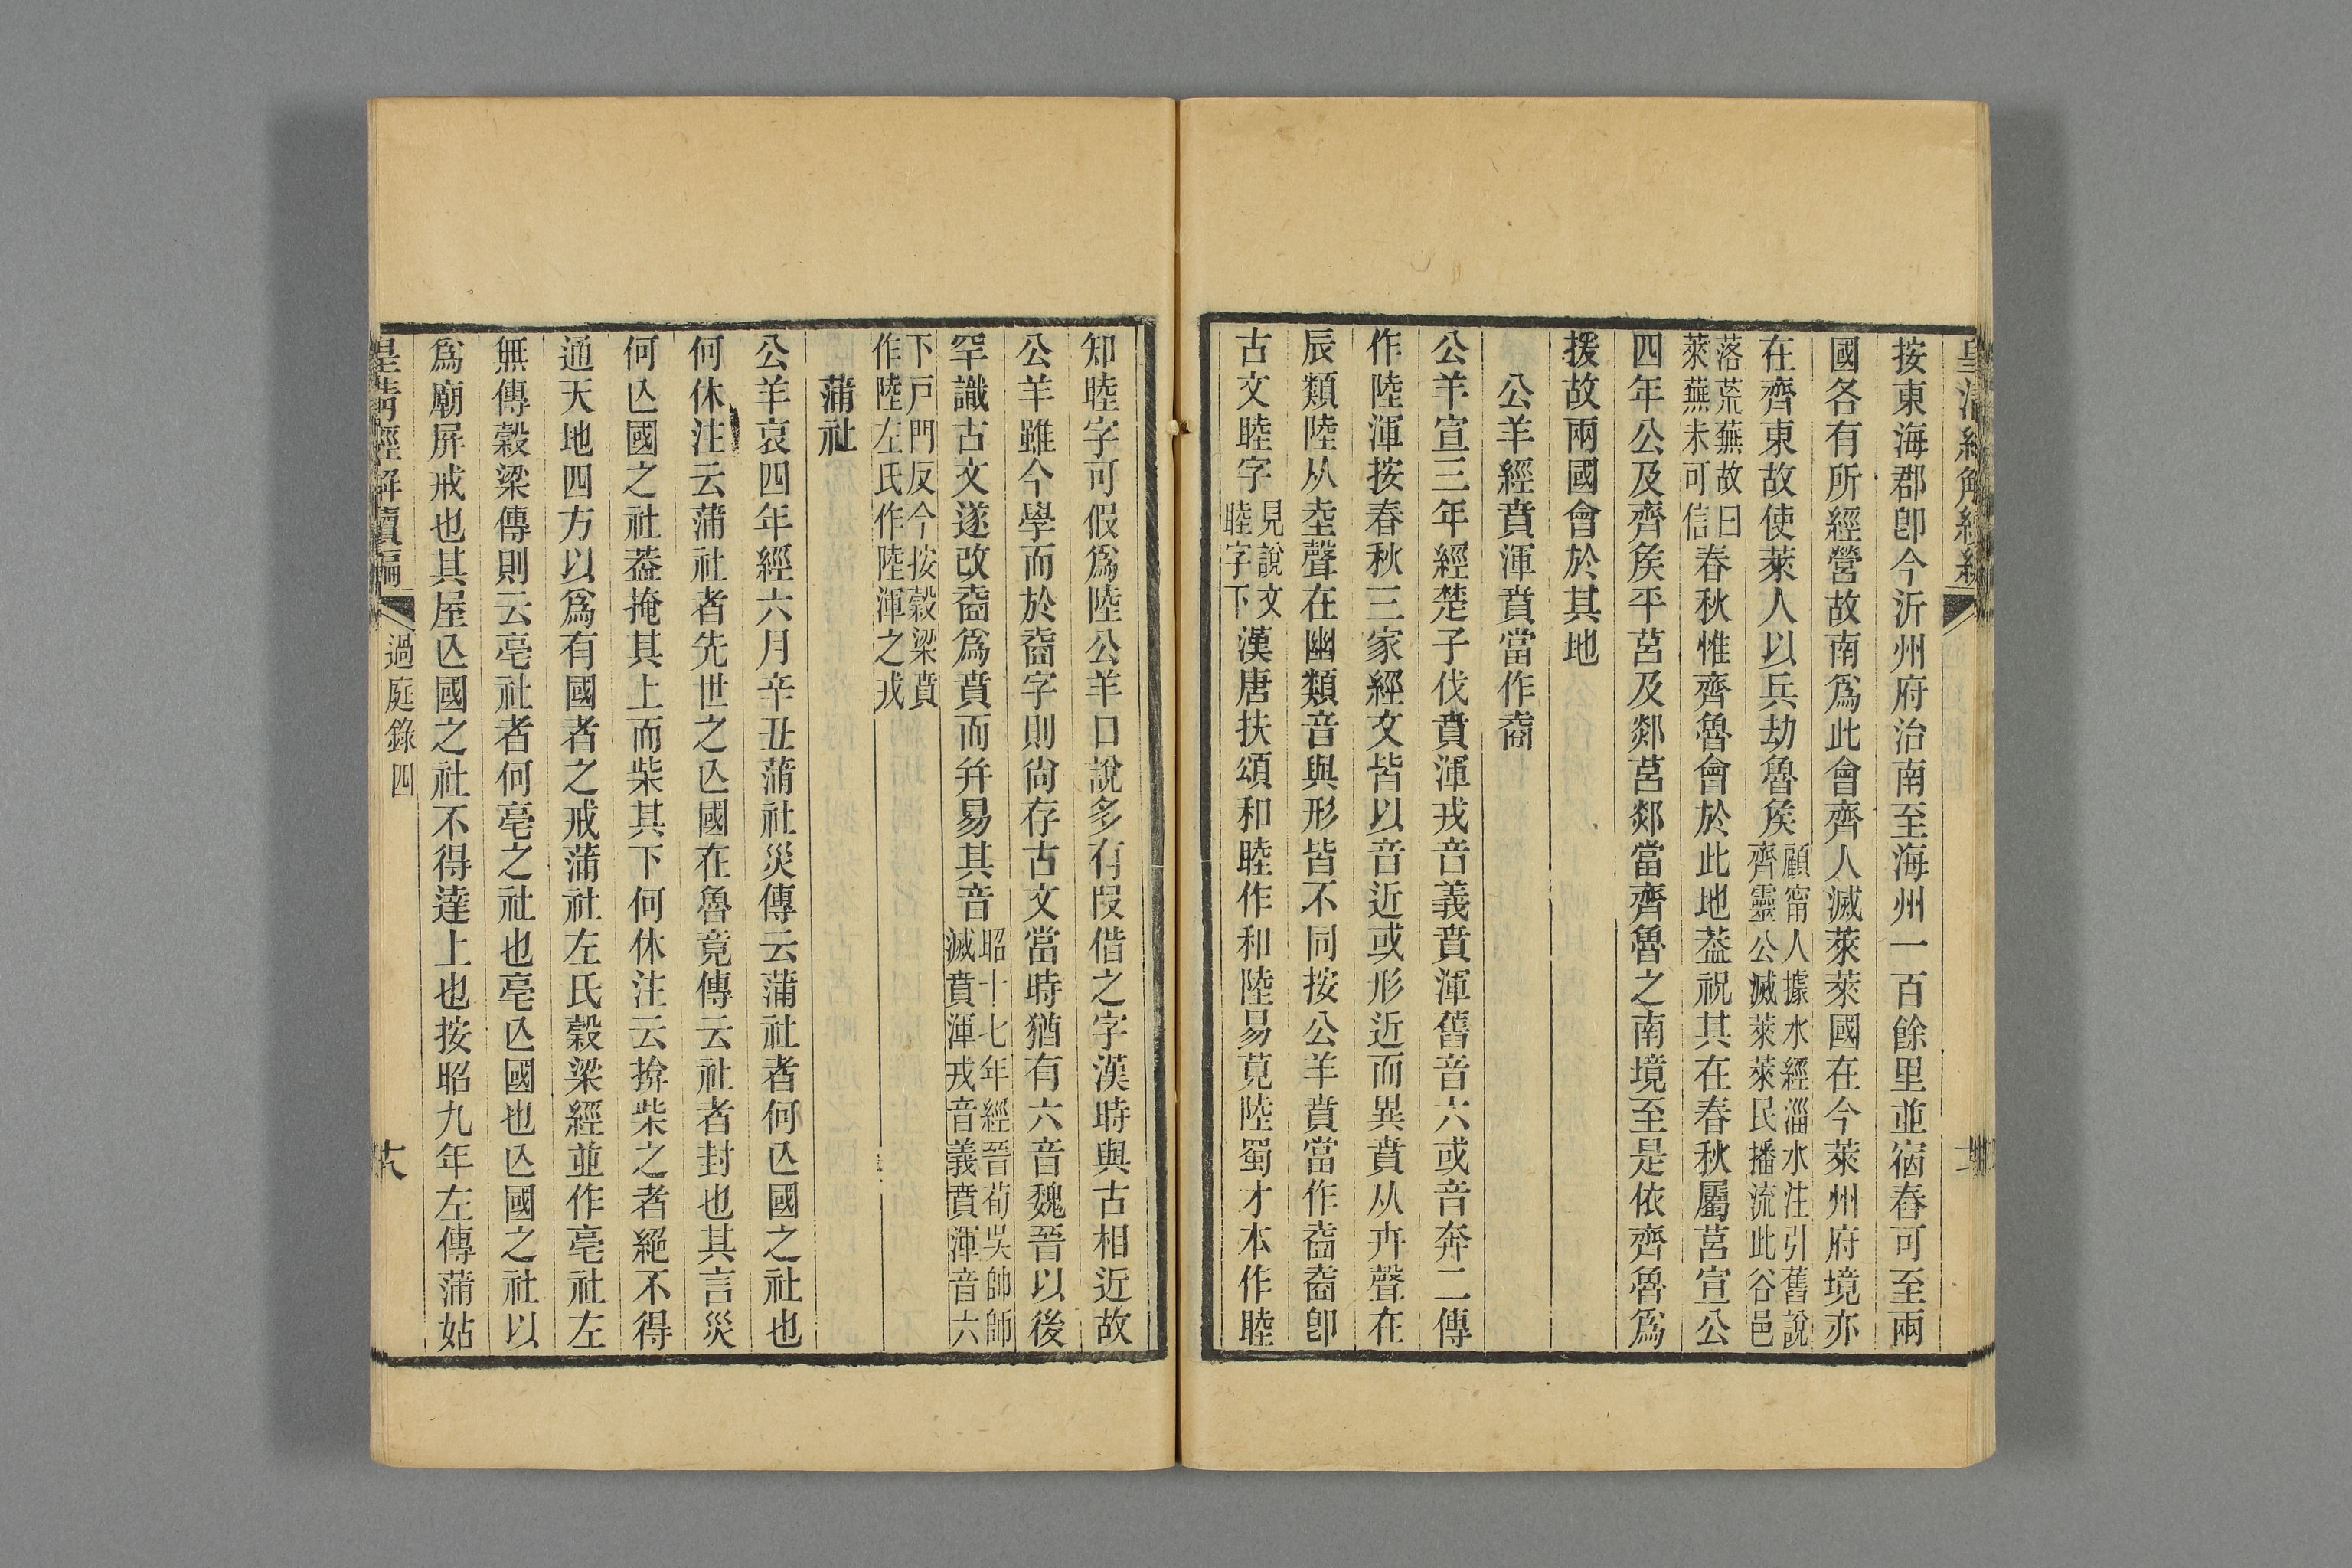 按東海郡卽今沂州府治南至海州一百餘里並宿舂可至兩
國各有所經營故南爲此會齊人滅萊萊國在今萊州府境亦
在齊東故使萊人以兵劫魯矦顧甯人據水經淄水注引舊說齊靈公滅萊萊民播流此谷邑
落荒蕪故曰萊蕪未可信春秋惟齊魯會於此地葢祝其在春秋屬莒宣公
四年公及齊矦平莒及郯莒郯當齊魯之南境至是依齊魯爲
援故兩國會於其地
公羊經賁渾賁當作𡍮
公羊宣三年經楚子伐賁渾戎音義賁渾舊音六或音奔二傳
作陸渾按春秋三家經文皆以音近或形近而異賁从卉聲在
辰類陸从坴聲在幽類音與形皆不同按公羊賁當作𡍮𡍮卽
古文睦字見說文睦字下漢唐扶頌和睦作和陸易莧陸蜀才本作睦
知睦字可假爲陸公羊口說多有叚偕之字漢時與古相近故
公羊雖今學而於𡍮字則尙存古文當時猶有六音魏晉以後
罕識古文遂改𡍮爲賁而幷易其音昭十七年經晉荀吳帥師滅賁渾戎音義賁渾音六
下戸門反今按穀梁賁作陸左氏作陸渾之戎
蒲社
公羊哀四年經六月辛丑蒲社災傳云蒲社者何亾國之社也
何休注云蒲社者先世之亾國在魯竟傳云社者封也其言災
何亾國之社葢掩其上而柴其下何休注云揜柴之者絕不得
通天地四方以爲有國者之戒蒲社左氏穀梁經並作亳社左
無傳穀梁傳則云亳社者何亳之社也亳亾國也亾國之社以
爲廟屏戒也其屋亾國之社不得達上也按昭九年左傳蒲姑
皇清經解續編
過庭錄四